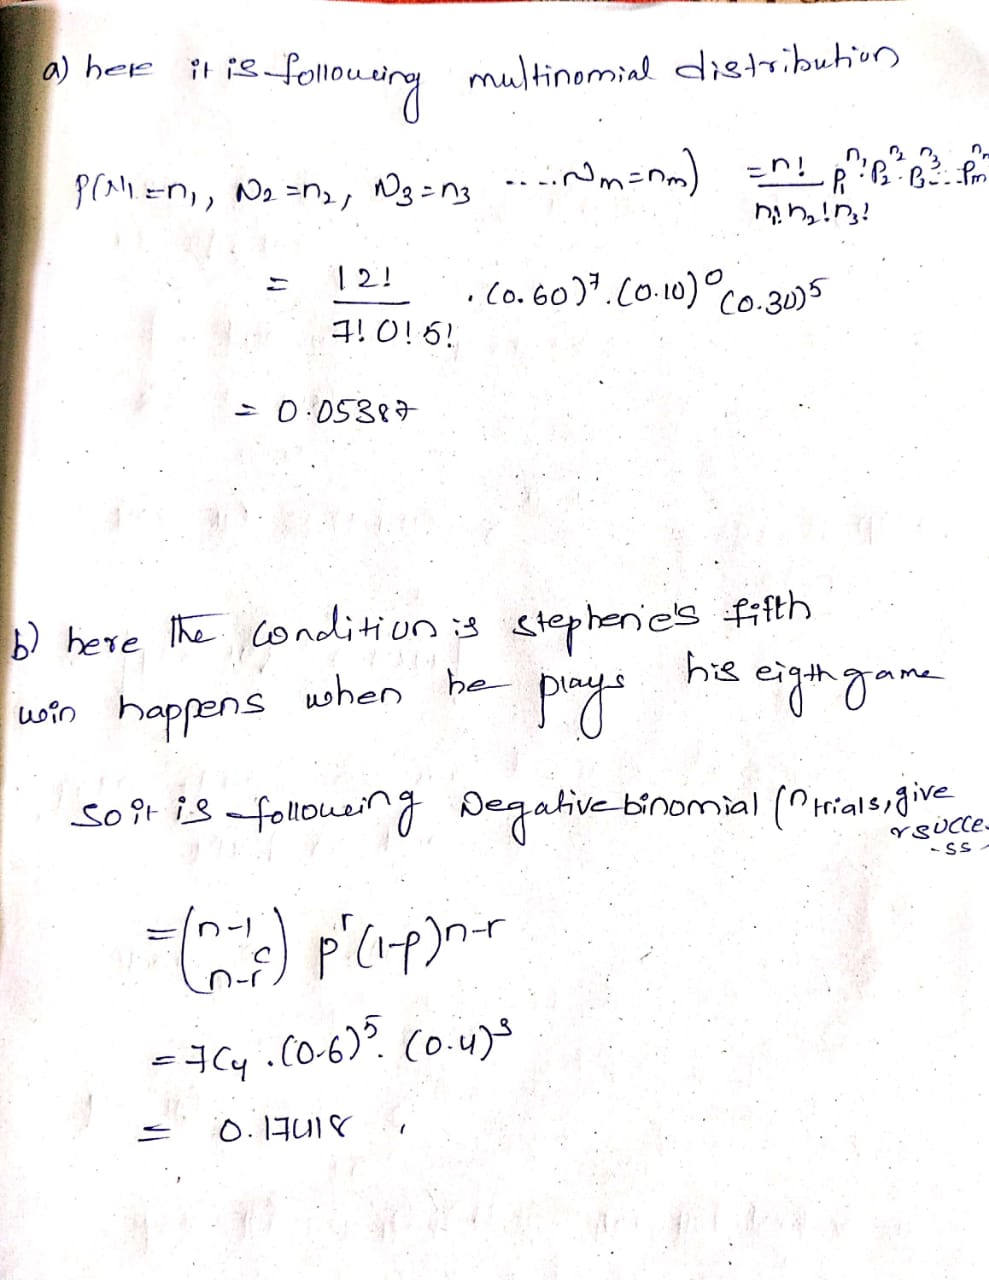 a) here it is following multinomial distribution
P(N1 = n1, N2 = n2, N3 = n3 ..... Nm = nm) = n! / n1! n2! n3! P1^n1 . P2^n2 . P3^n3 ... Pm^nm
= 12! / 7! 0! 5! . (0.60)^7 . (0.10)^0 (0.30)^5
= 0.05387
b) here the condition is stephenie's fifth
win happens when he plays his eigth game
So it is following Negative binomial (n trials, give
r succe-
-ss-
= (n-1 C n-r) p^r (1-p)^n-r
= 7C4 . (0.6)^5 . (0.4)^3
= 0.17418